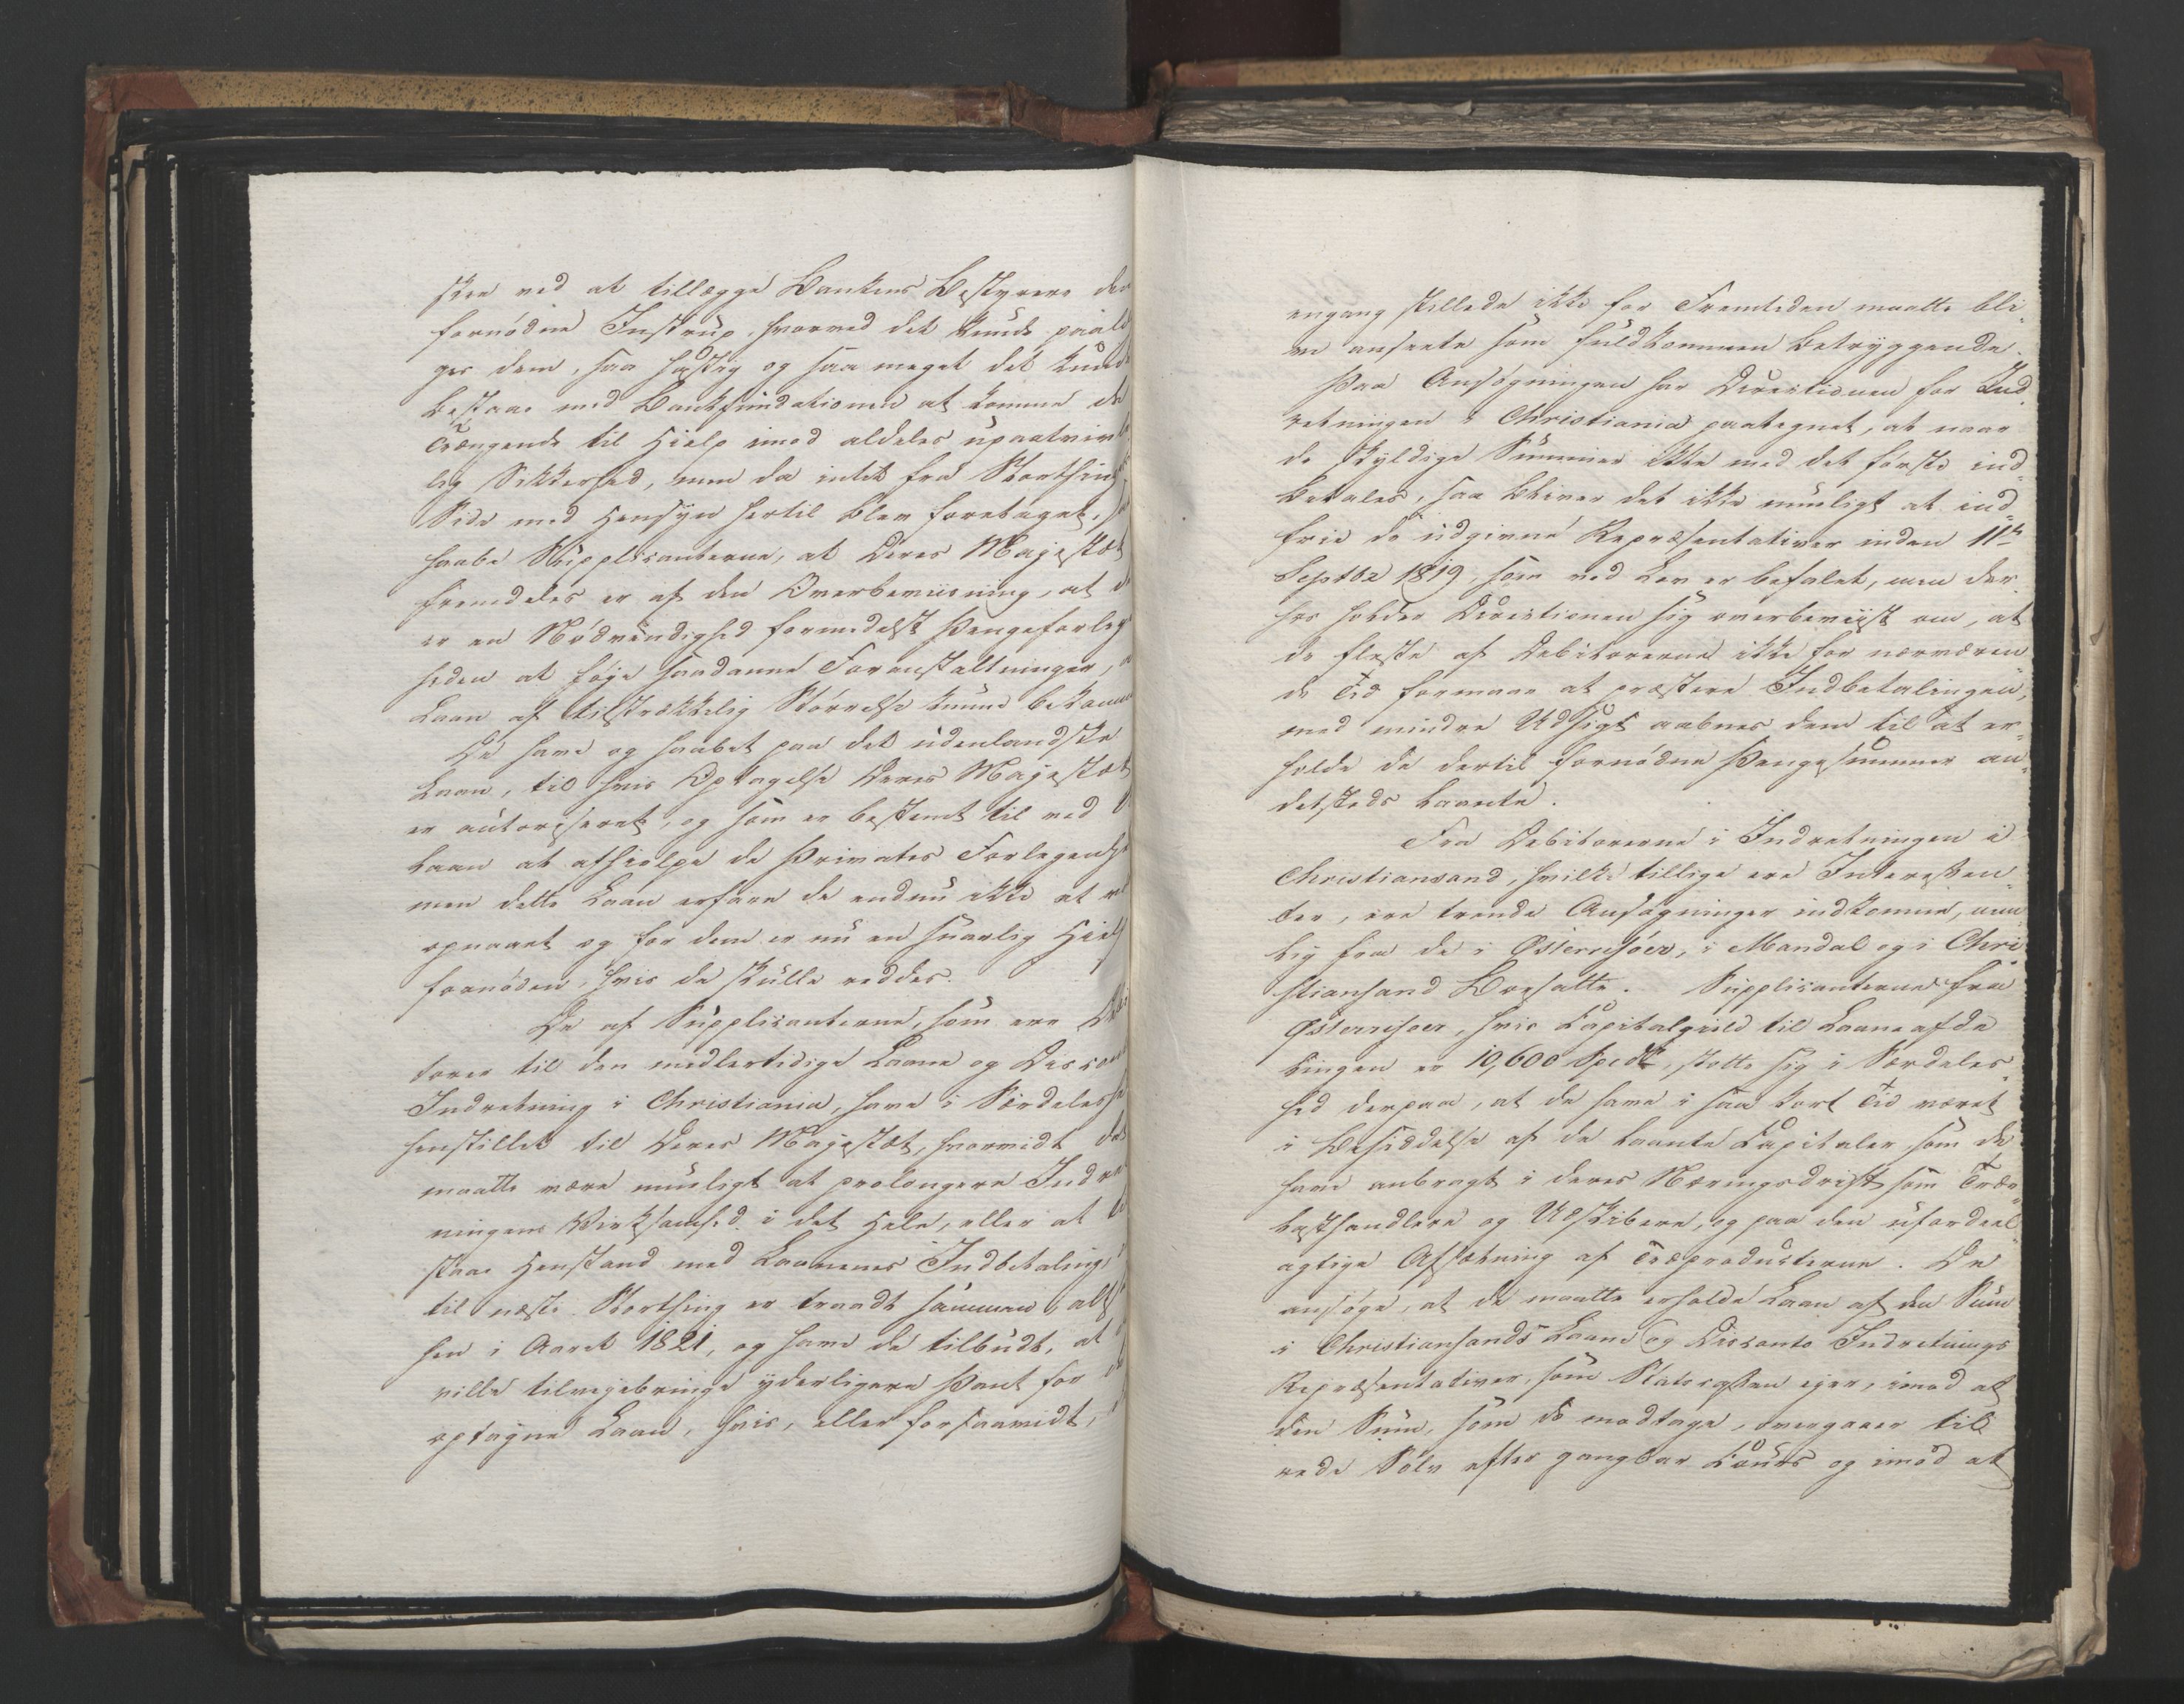 skee ved at tillægge Bankens Bestyrere den
fornødne Instrux, hvorved det kunde paalæg
ges dem, saa hastig og saa meget det kunde
bestaae med Bankfundationen at komme de
Trængende til Hielp imod aldeles upaatvivle
lig Sikkerhed, men da intet fra Storthingets
Side med Hensyn hertil blev foretaget,
haabe Supplicanterne, at Deres Majestæt
fremdeles er af den Overbeviisning, at d
er en Nødvendighed formedelst Pengeforlegen
heden at føye saadanne Foranstaltninger, a
Laan af tilstrækkelig Størrelse kunne bekomm
De have og haabet paa det udenlandske
Laan, til hvis Optagelse Deres Majestæt
er autoriseret, og som er bestemt til ved
Laan at afhielpe de Privates Forlegenhed
men dette Laan erfare de endnu ikke at være
opnaaet og for dem er nu en snarlig Hielp
fornøden, hvis de skulle reddes.
De af Supplicanterne, som ere Debi
torer til den midlertidige Laane og Disconto
Indretning i Christiania, have i Særdeleshed
henstillet til Deres Majestæt, hvorvidt det
maatte være mueligt at prolongere Indret
ningens Virksomhed i det Hele, eller at til
staae Henstand med Laanenes Indbetaling
til næste Storthing er traadt sammen, alt
hen i Aaret 1821, og have de tilbudt, at
ville tilveyebringe yderligere Pant for de
optagne Laan, hvis, eller forsaavidt,
engang stillede ikke for Fremtiden maatte bli
ve ansete som fuldkommen betryggende.
Paa Ansøgningen har Directionen for Ind
retningen i Christiania paategnet, at naar
de skyldige Summer ikke med det første ind
betales, saa bliver det ikke mueligt at ind
frie de udgivne Repræsentativer inden 11te
Septbr 1819, som ved Lov er befalet, men der
hos holder Directionen sig overbeviist om, at
de fleste af Debitorerne ikke for nærværen
de Tid formaae at præstere Indbetalingen,
med mindre Udsigt aabnes dem til at er
holde de dertil fornødne Pengesummer an
detsteds laante.
Fra Debitorerne i Indretningen i
Christiansand, hvilke tillige ere Interessen
ter, ere trende Ansøgninger indkomne, nem
lig fra de i Østerrisøer, i Mandal og i Chri
stiansand Bosatte. Supplicanterne fra
Østerrisøer, hvis Capitalgield til Laaneafde
lingen er 10,600 Spdlr, støtte sig i Særdeles
hed derpaa, at de have i saa kort Tid været
i Besiddelse af de laante Capitaler som de
have anbragt i deres Næringsdrift som Træe
lasthandlere og Udskibere, og paa den ufordeel
agtige Afsætning af Træproducterne. De
ansøge, at de maatte erholde Laan af den Sum
i Christiansands Laane og Disconto Indretnings
Repræsentativer, som Statscassen eyer, imod at
den Sum, som de modtage, overgaaer til
rede Sølv efter gangbar Cours og imod at